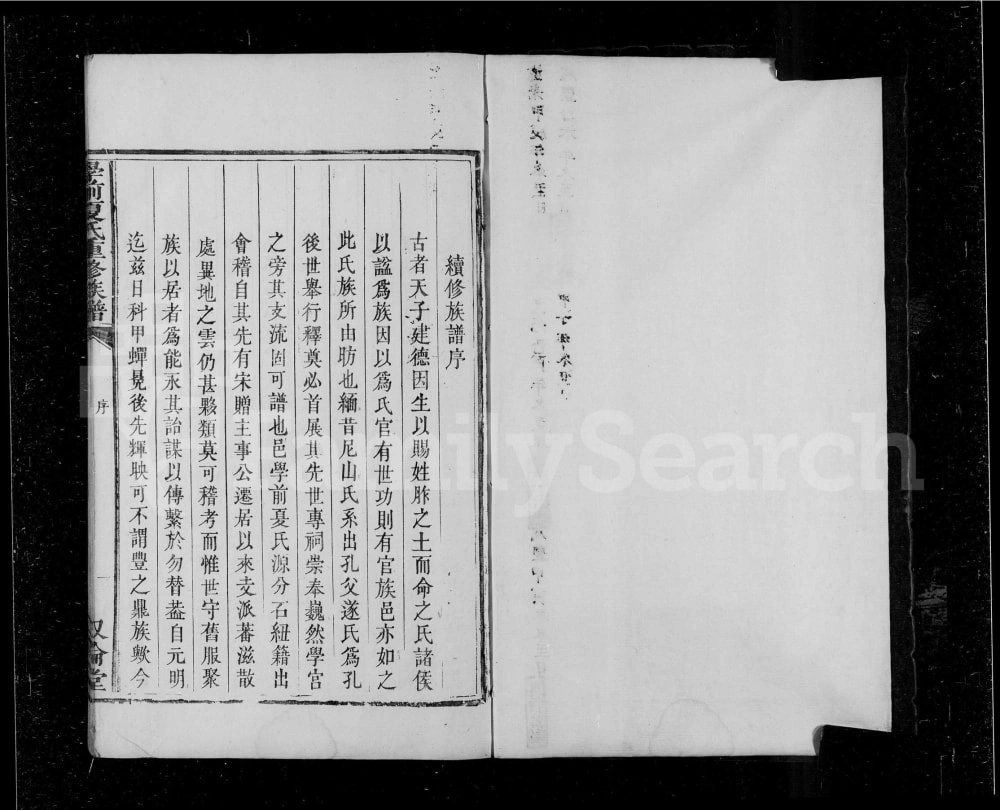 續修族譜序
古者天子建德因生以賜姓胙之土而命之氏諸侯
以諡爲族因以爲氏官有世功則有官族邑亦如之
此氏族所由昉也緬昔尼山氏系出孔父遂氏爲孔
後世舉行釋奠必首展其先世專祠崇奉巍然學宮
之旁其支流固可譜也邑學前夏氏源分石紐籍出
會稽自其先有宋贈主事公遷居以來支派蕃滋散
處異地之雲仍甚夥類莫可稽考而惟世守舊服聚
族以居者爲能永其詒謀以傳繫於勿替葢自元明
迄兹日科甲蟬晃後先輝映可不謂豐之鼎族歟今
學前夏氏重修族譜
序
一
叙倫堂
FamilySearch